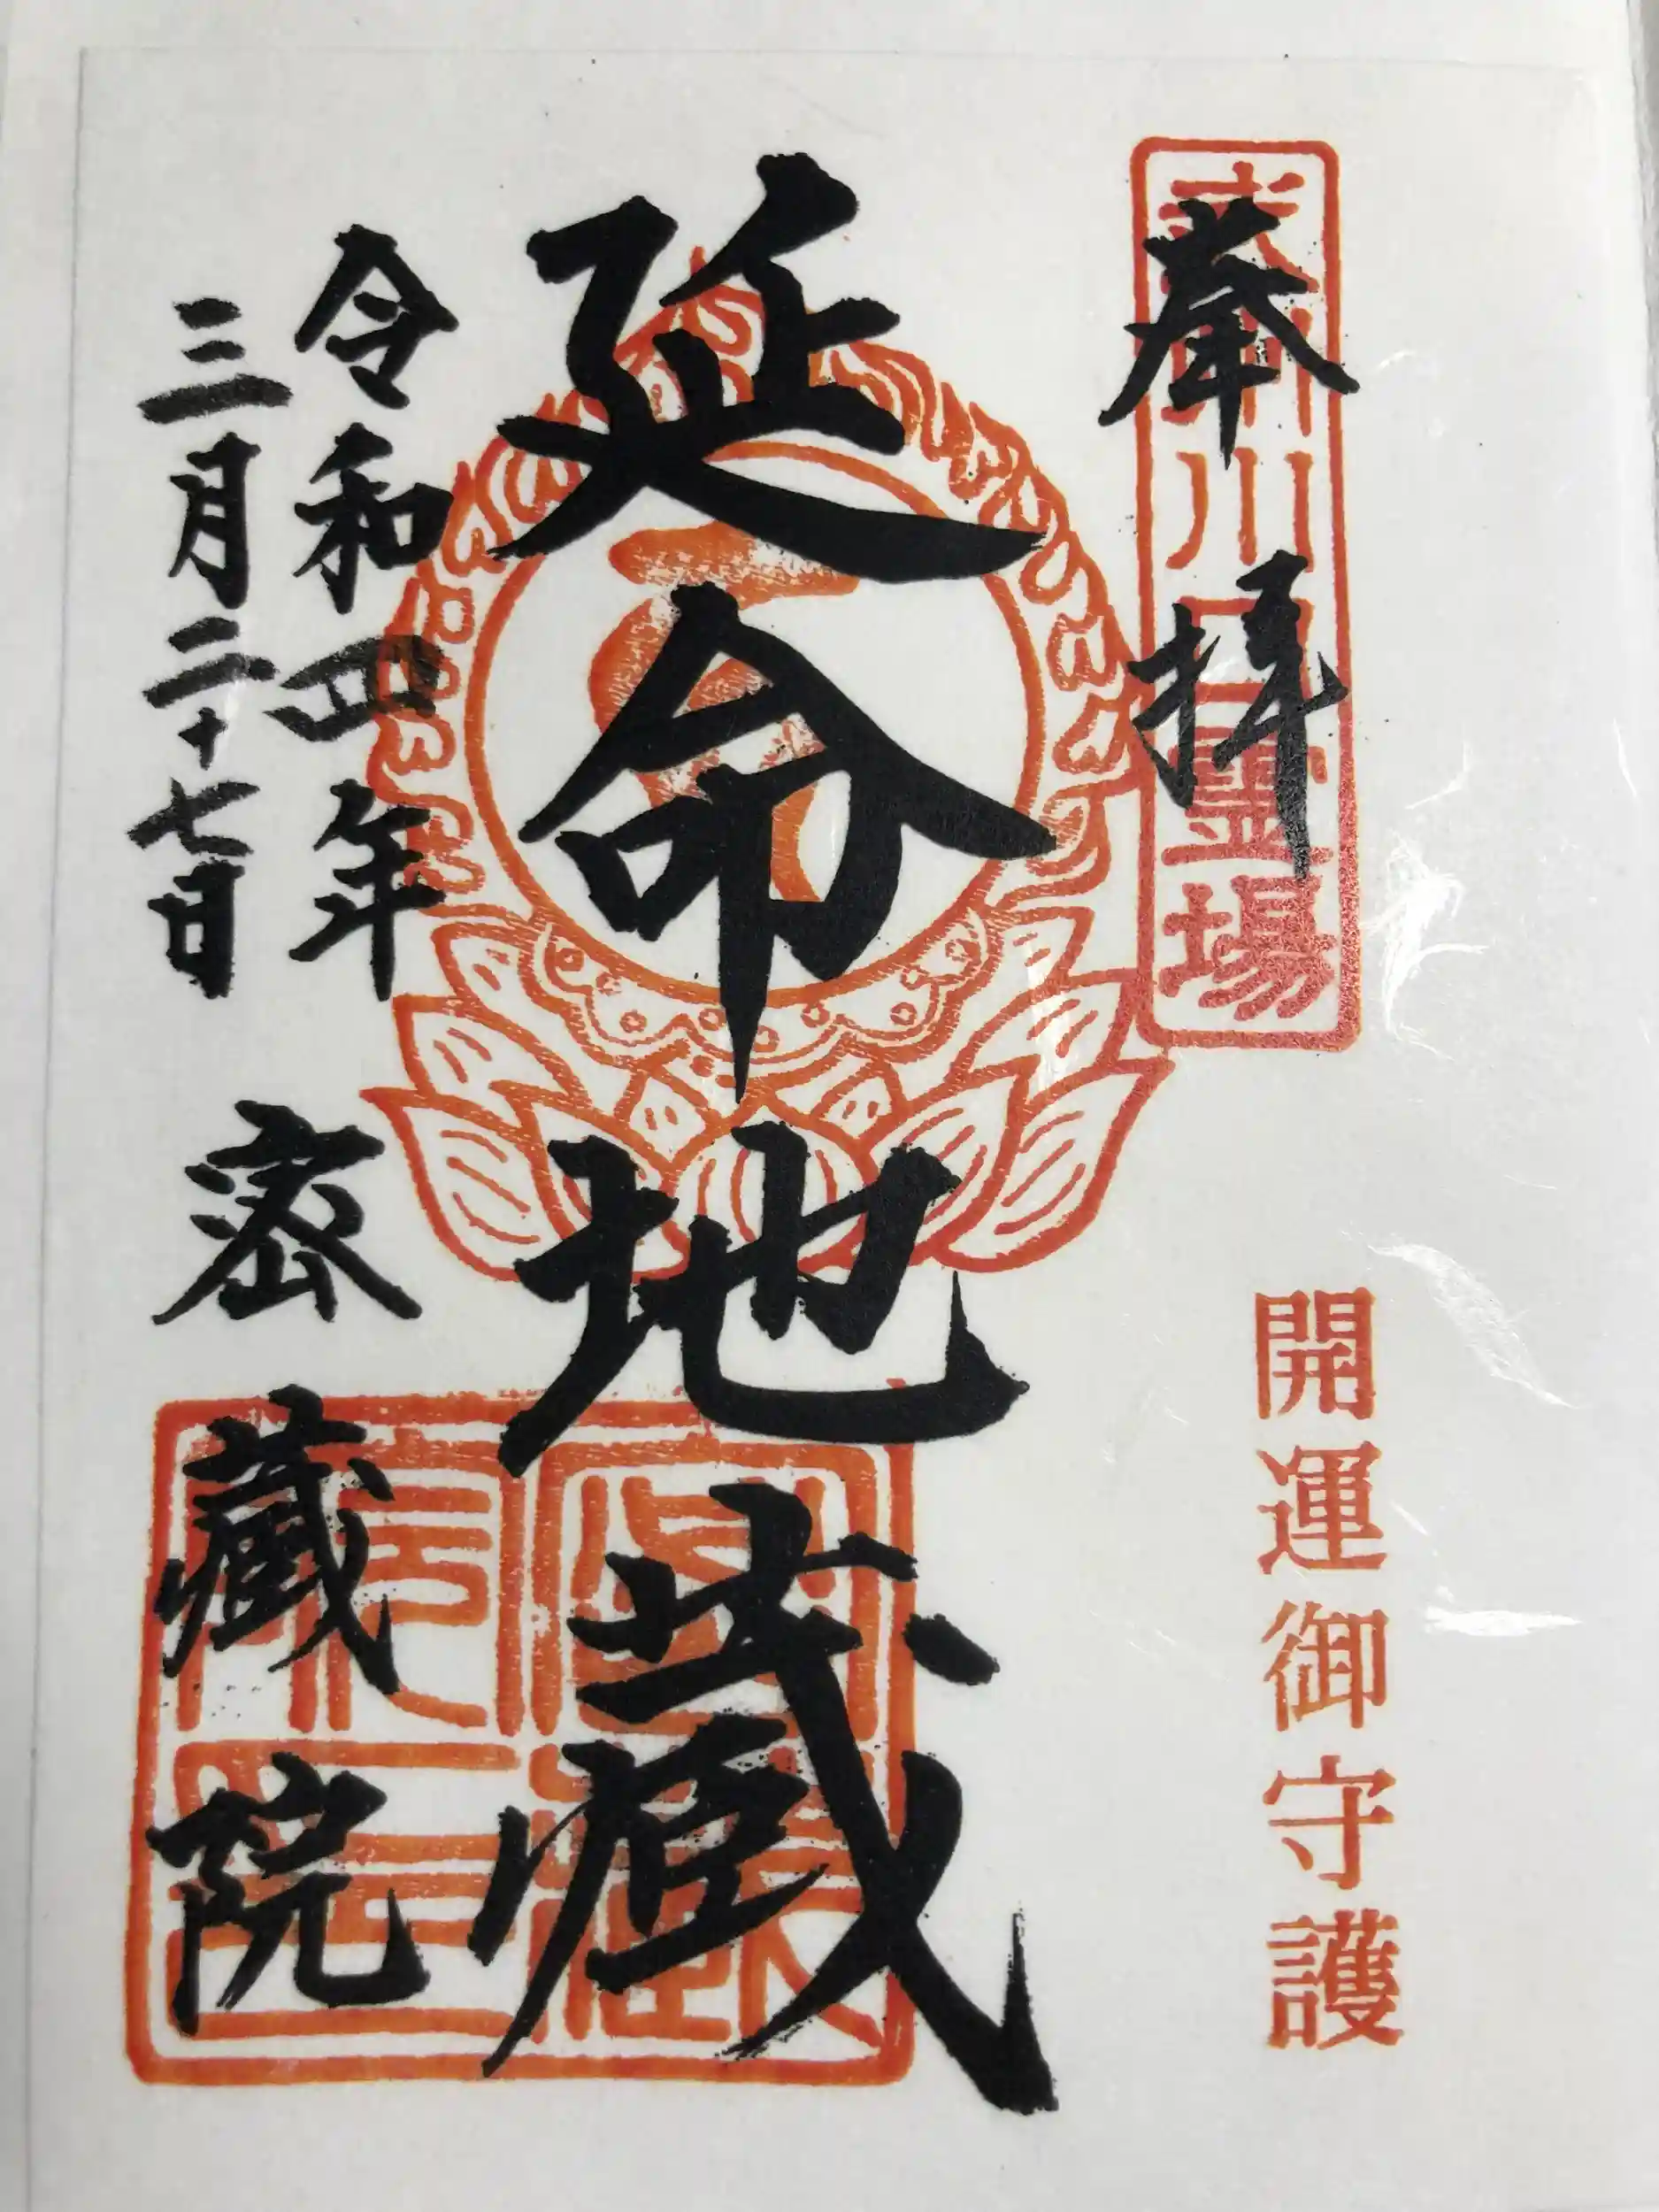 奉拝
霊場
開運御守護
延命地蔵
令和四年
三月二十七日
密蔵院